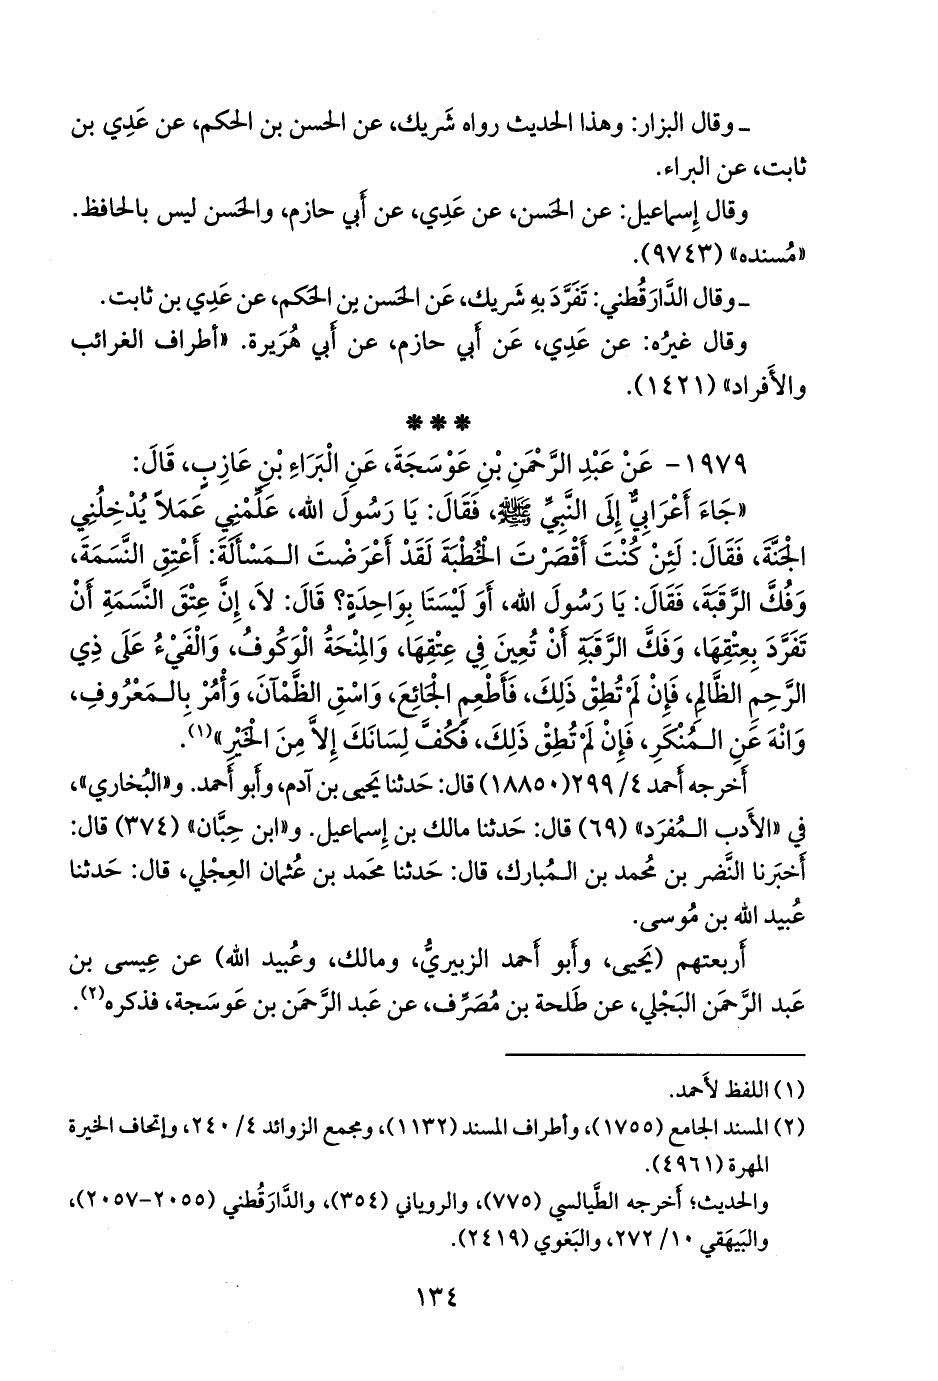 ـ وقال البزار: وهذا الحديث رواه شَريك، عن الحسن بن الحكم، عن عَدِي بن
ثابت، عن البراء.
وقال إِسماعيل: عن الحَسن، عن عَدِي، عن أَبي حازم، والحَسن ليس بالحافظ.
«مُسنده» (٩٧٤٣).
ـ وقال الدَّارَقُطني: تَفَرَّدَ بِهِ شَريك، عَن الحَسن بن الحَكم، عن عَدِي بن ثابت.
وقال غيرُه: عن عَدِي، عَن أَبي حازم، عن أَبي هُرَيرة. «أطراف الغرائب
والأَفراد» (١٤٢١).
***
١٩٧٩- عَنْ عَبْدِ الرَّحْمَنِ بْنِ عَوْسَجَةَ، عَنِ الْبَرَاءِ بْنِ عَازِبٍ، قَالَ:
«جَاءَ أَعْرَابِيٌّ إِلَى النَّبِيِّ ﷺ، فَقَالَ: يَا رَسُولَ الله، عَلِّمْنِي عَمَلاً يُدْخِلُنِي
الْجَنَّةَ، فَقَالَ: لَئِنْ كُنْتَ أَقْصَرْتَ الْخُطْبَةَ لَقَدْ أَعْرَضْتَ الـمَسْأَلَةَ: أَعْتِقِ النَّسَمَةَ،
وَفُكَّ الرَّقَبَةَ، فَقَالَ: يَا رَسُولَ الله، أَوَ لَيْسَتَا بِوَاحِدَةٍ؟ قَالَ: لاَ، إِنَّ عِتْقَ النَّسَمَةِ أَنْ
تَفَرَّدَ بِعِتْقِهَا، وَفَكَّ الرَّقَبَةِ أَنْ تُعِينَ فِي عِتْقِهَا، وَالْمِنْحَةُ الْوَكُوفُ، وَالْفَيْءُ عَلَى ذِي
الرَّحِمِ الظَّالِمِ، فَإِنْ لَمْ تُطِقْ ذَلِكَ، فَأَطْعِمِ الْجَائِعَ، وَاسْقِ الظَّمْآنَ، وَأْمُرْ بِالـمَعْرُوفِ،
وَانْهَ عَنِ الـمُنْكَرِ، فَإِنْ لَمْ تُطِقْ ذَلِكَ، فَكُفَّ لِسَانَكَ إِلاَّ مِنَ الْخَيْرِ»(١).
أَخرجه أَحمد ٤/ ٢٩٩(١٨٨٥٠) قال: حَدثنا يَحيى بن آدم، وأَبو أَحمد. و«البُخاري»،
في «الأَدب الـمُفرَد» (٦٩) قال: حَدثنا مالك بن إِسماعيل. و«ابن حِبَّان» (٣٧٤) قال:
أَخبَرنا النَّضر بن مُحمد بن الـمُبارك، قال: حَدثنا محَمد بن عُثمان العِجْلي، قال: حَدثنا
عُبيد الله بن مُوسى.
أَربعتهم (يَحيى، وأَبو أَحمد الزبيريُّ، ومالك، وعُبيد الله) عن عِيسى بن
عَبد الرَّحمَن البَجْلي، عن طَلحة بن مُصَرِّف، عن عَبد الرَّحمَن بن عَوسَجة، فذكره(٢).
(١) اللفظ لأَحمد.
(٢) المسند الجامع (١٧٥٥)، وأطراف المسند (١١٣٢)، ومجمع الزوائد ٤/ ٢٤٠، وإتحاف الخيرة
المهرة (٤٩٦١).
والحديث؛ أَخرجه الطَّيالسي (٧٧٥)، والروياني (٣٥٤)، والدَّارَقُطني (٢٠٥٥-٢٠٥٧)،
والبَيهَقي ١٠/ ٢٧٢، والبَغوي (٢٤١٩).
١٣٤